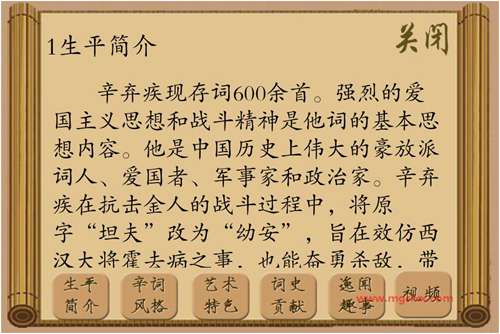 关闭
1生平简介
辛弃疾现存词600余首。强烈的爱
国主义思想和战斗精神是他词的基本思
想内容。他是中国历史上伟大的豪放派
词人、爱国者、军事家和政治家。辛弃
疾在抗击金人的战斗过程中，将原
字“坦夫”改为“幼安”，旨在效仿西
汉大将霍去病之事，也能奋勇杀敌，带
生平
简介
辛词
风格
艺术
特色
词史
贡献
逸闻
趣事
视频